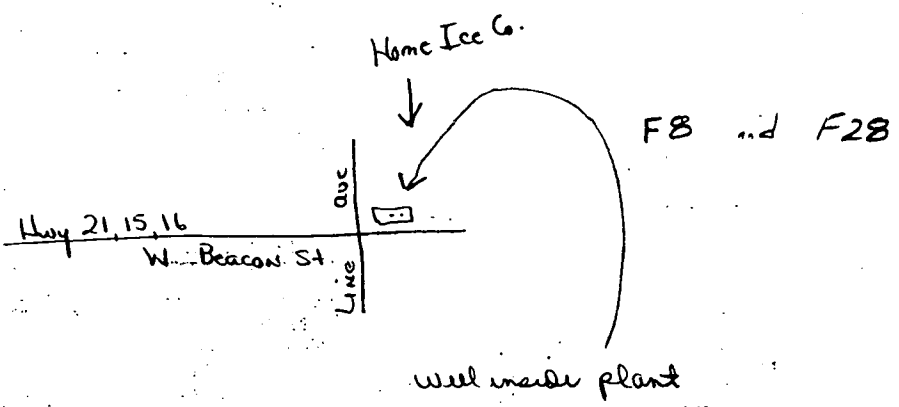 Home Ice Co.
F8 and F28
ave
Hwy 21, 15, 16
W. Beacon St.
Line
well inside plant